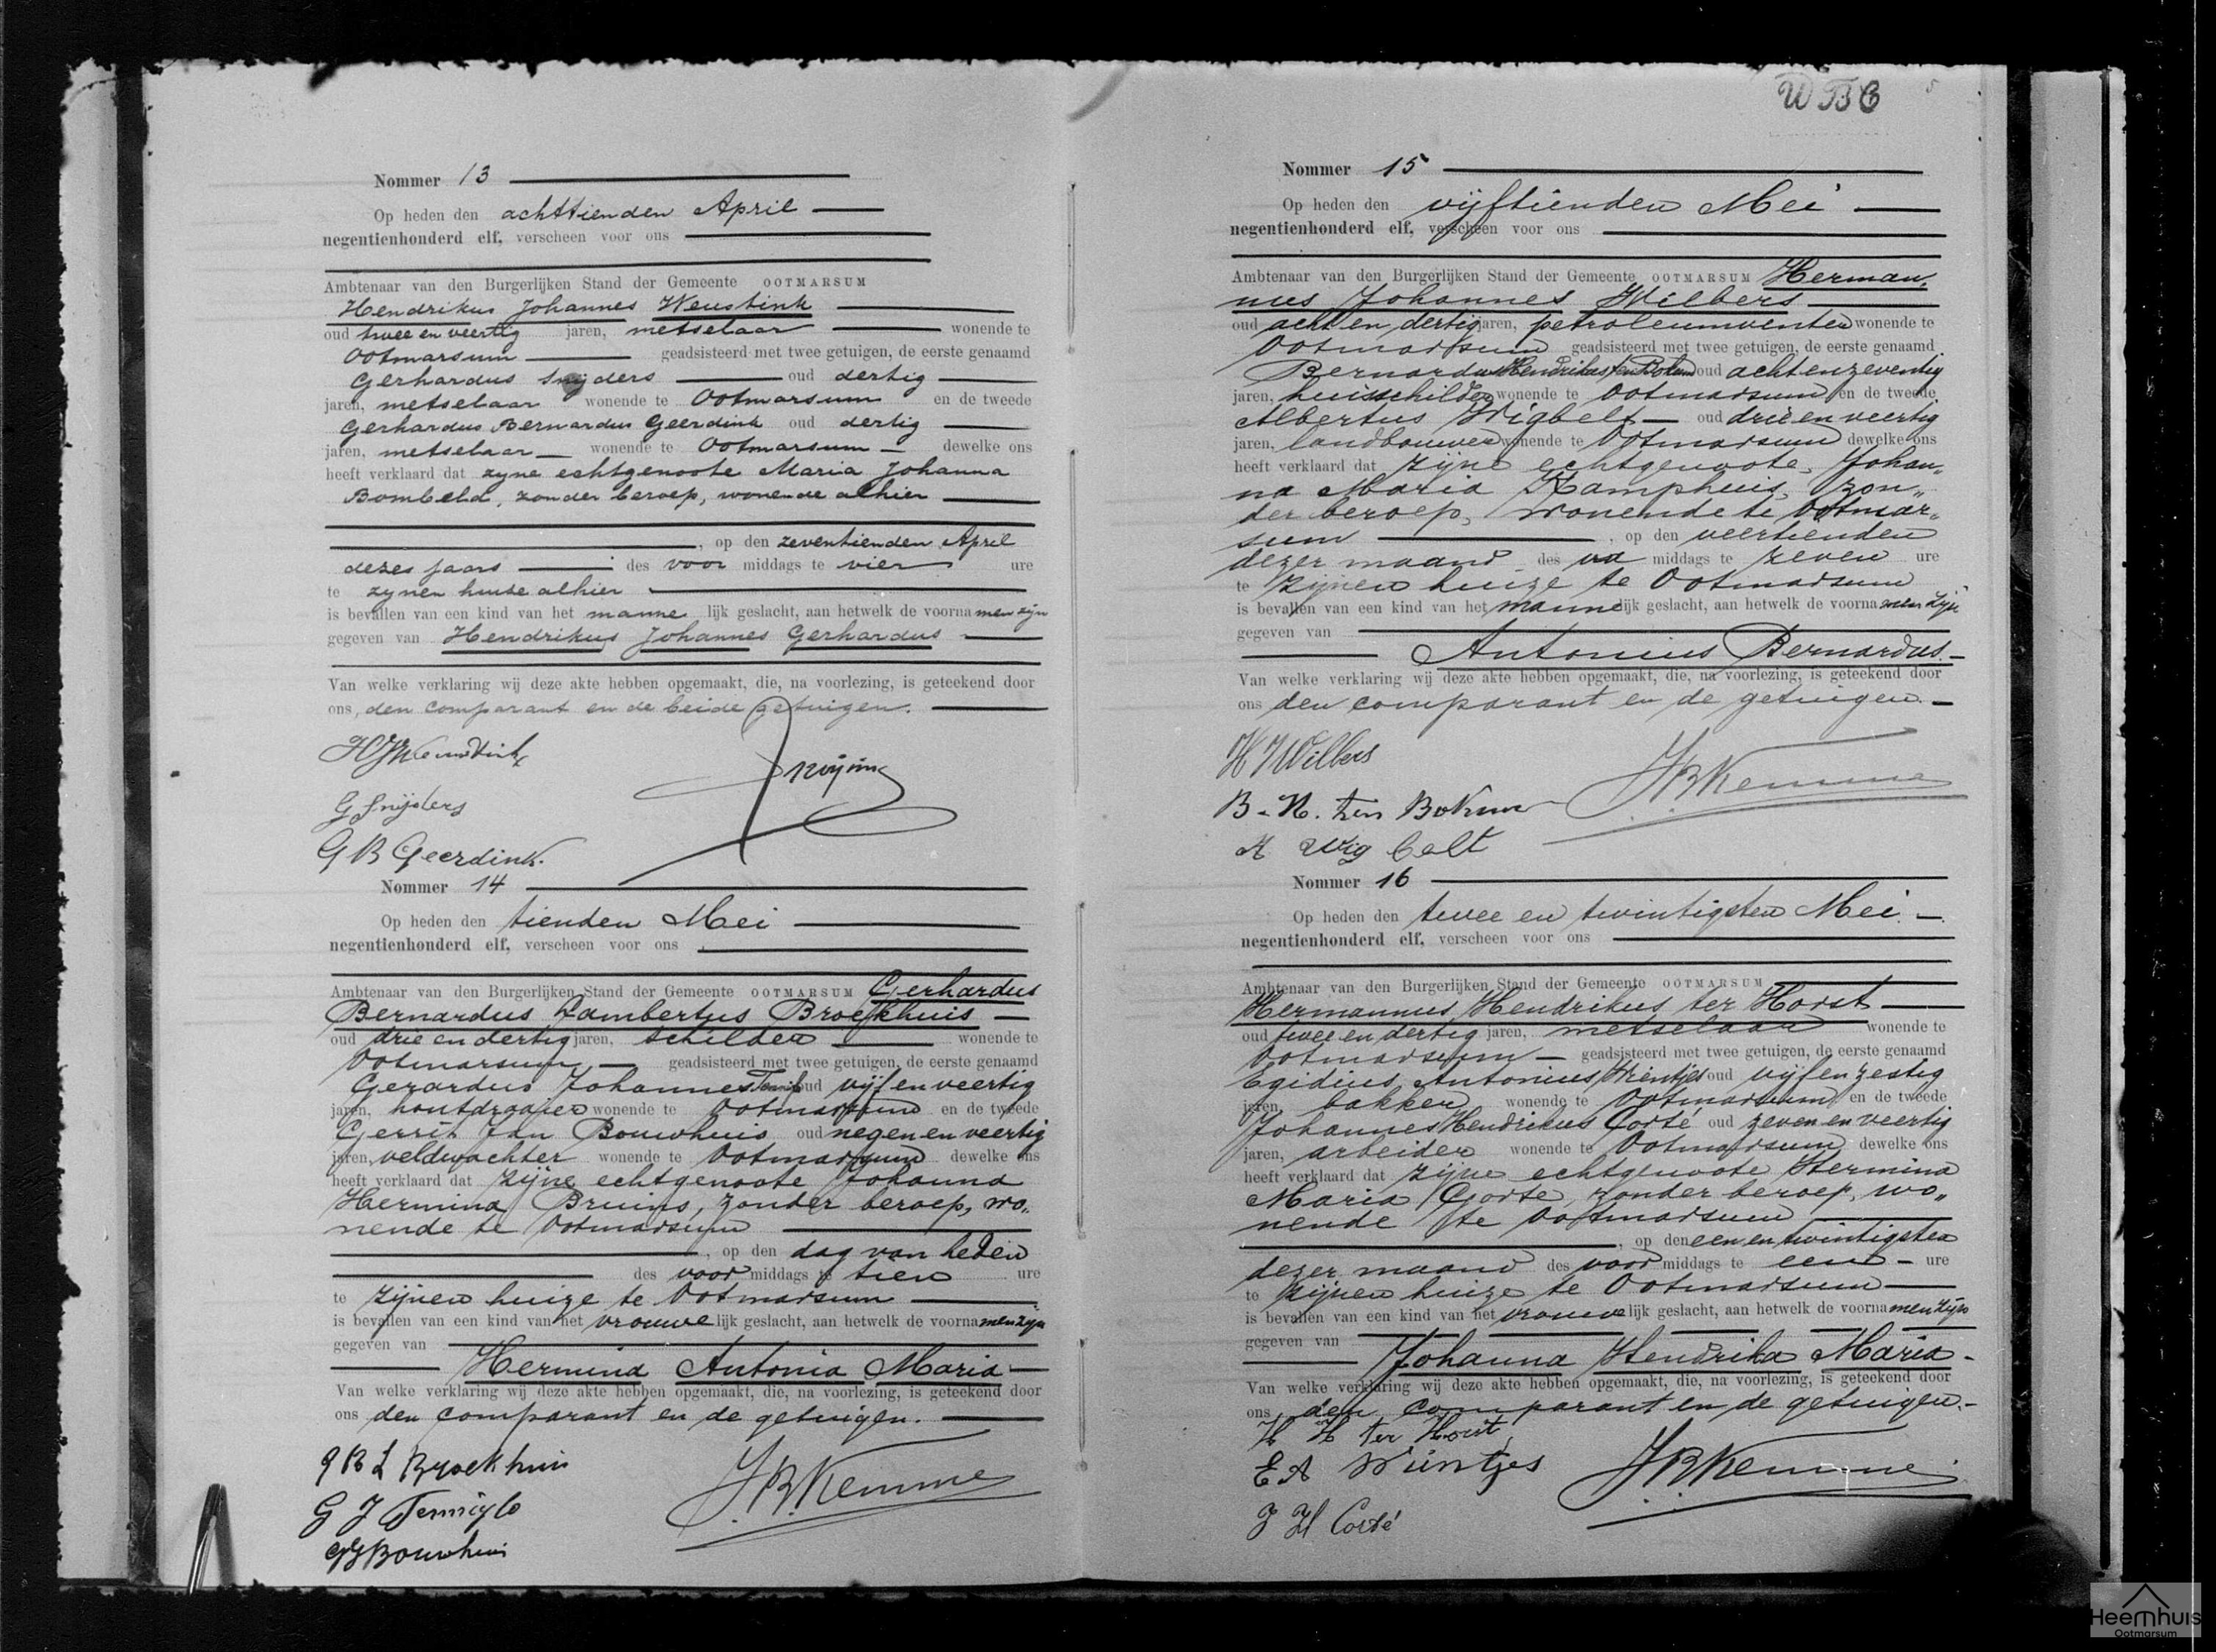 Nommer 13
Op heden den achttienden April
negentienhonderd elf, verscheen voor ons
Ambtenaar van den Burgerlijken Stand der Gemeente OOTMARSUM
Hendrikus Johannes Weustink
oud twee en veertig jaren, metselaar wonende te
Ootmarsum geadsisteerd met twee getuigen, de eerste genaamd
Gerhardus Snijders oud dertig
jaren, metselaar wonende te Ootmarsum en de tweede
Gerhardus Bernardus Geerdink oud dertig
jaren, metselaar wonende te Ootmarsum dewelke ons
heeft verklaard dat zyne echtgenoote Maria Johanna
Bombeld, zonder beroep, wonende alhier
, op den zeventienden April
dezes jaars des voor middags te vier ure
te zynen huize alhier
is bevallen van een kind van het manne lijk geslacht, aan hetwelk de voorna men zyn
gegeven van Hendrikus Johannes Gerhardus
Van welke verklaring wij deze akte hebben opgemaakt, die, na voorlezing, is geteekend door
ons, den comparant en de beide getuigen.
HJWeustink
G Snijders
G B Geerdink.
Nommer 14
Op heden den tienden Mei
negentienhonderd elf, verscheen voor ons
Ambtenaar van den Burgerlijken Stand der Gemeente OOTMARSUM Gerhardus
Bernardus Lambertus Broekhuis
oud drie en dertig jaren, schilder wonende te
Ootmarsum geadsisteerd met twee getuigen, de eerste genaamd
Gerardus Johannes oud vijf en veertig
jaren, houtdraaier wonende te Ootmarsum en de tweede
Gerrit Jan Bouwhuis oud negen en veertig
jaren, veldwachter wonende te Ootmarsum dewelke ons
heeft verklaard dat zijne echtgenoote Johanna
Hermina Bruins, zonder beroep, wo„
nende te Ootmarsum
, op den dag van heden
des voor middags te tien ure
te zijnen huize te Ootmarsum
is bevallen van een kind van het vrouwe lijk geslacht, aan hetwelk de voorna men zijn
gegeven van
Hermina Antonia Maria
Van welke verklaring wij deze akte hebben opgemaakt, die, na voorlezing, is geteekend door
ons den comparant en de getuigen.
G B L Broekhuis
J.B.Kemme
G J
GJBouwhuis
WBC
5
Nommer 15
Op heden den vijftienden Mei
negentienhonderd elf, verscheen voor ons
Ambtenaar van den Burgerlijken Stand der Gemeente OOTMARSUM Herman„
nus Johannes Wilbers
oud acht en dertig jaren, petroleumventer wonende te
Ootmarsum geadsisteerd met twee getuigen, de eerste genaamd
Bernardus Hendrikus ten Bokum oud acht en zeventig
jaren, huisschilder wonende te Ootmarsum en de tweede
Albertus Wigbelt oud drie en veertig
jaren, landbouwer wonende te Ootmarsum dewelke ons
heeft verklaard dat zijne echtgenoote, Johan„
na Maria Kamphuis, zon„
der beroep, wonende te Ootmar„
sum , op den veertienden
dezer maand des na middags te zeven ure
te zijnen huize te Ootmarsum
is bevallen van een kind van het manne lijk geslacht, aan hetwelk de voorna men zijn
gegeven van
Antonius Bernardus.
Van welke verklaring wij deze akte hebben opgemaakt, die, na voorlezing, is geteekend door
ons den comparant en de getuigen.
H J Wilbers
J.B.Kemme
B. H. ten Bokum
A Wigbelt
Nommer 16
Op heden den twee en twintigsten Mei.
negentienhonderd elf, verscheen voor ons
Ambtenaar van den Burgerlijken Stand der Gemeente OOTMARSUM
Hermannus Hendrikus ter Horst
oud twee en dertig jaren, metselaar wonende te
Ootmarsum geadsisteerd met twee getuigen, de eerste genaamd
Egidius Antonius Wientjes oud vijf en zestig
jaren, bakker wonende te Ootmarsum en de tweede
Johannes Hendrikus Corté oud zeven en veertig
jaren, arbeider wonende te Ootmarsum dewelke ons
heeft verklaard dat zijne echtgenoote Hermina
Maria Corte, zonder beroep, wo„
nende te Ootmarsum
, op den een en twintigsten
dezer maand des voor middags te een ure
te zijnen huize te Ootmarsum
is bevallen van een kind van het vrouwe lijk geslacht, aan hetwelk de voorna men zijn
gegeven van
Johanna Hendrika Maria
Van welke verklaring wij deze akte hebben opgemaakt, die, na voorlezing, is geteekend door
ons den comparant en de getuigen.
H H ter Horst
E A Wientjes
J.B.Kemme
J H Corté
Heemhuis
Ootmarsum